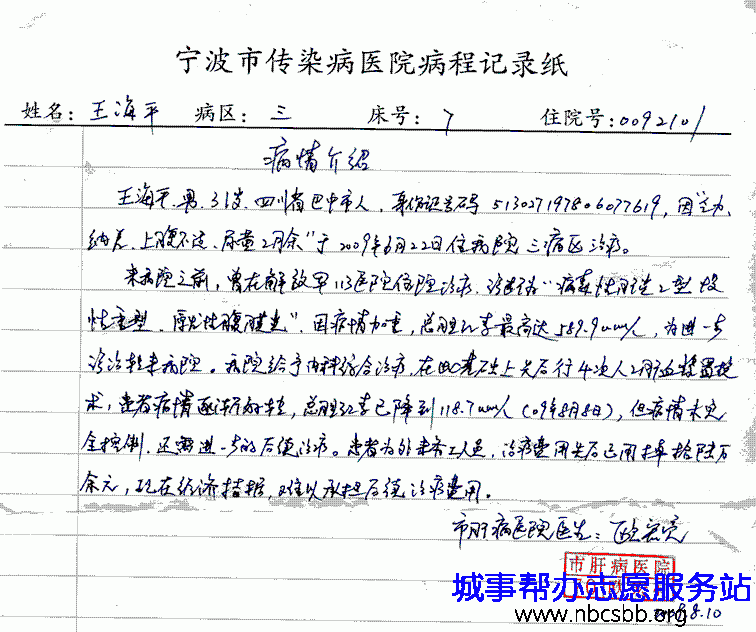 宁波市传染病医院病程记录纸
姓名: 王海平 病区: 三 床号: 7 住院号: 0092101
病情介绍
王海平、男、31岁、四川省巴中市人, 身份证号码 513027197806077619, 因"乏力、
纳差、上腹不适、尿黄2月余"于2009年6月22日住病院三病区治疗。
来病院之前, 曾在解放军113医院住院治疗, 诊断为"病毒性肝炎 型 慢
性重型、原发性腹膜炎", 因病情加重, 总胆红素最高达589.9umol/L, 为进一步
诊治转来病院。病院给予内科综合治疗, 在此基础上先后行4次人工肝血 置换
术, 患者病情逐渐好转, 总胆红素已降到118.7umol/L (09年8月8日), 但病情未完
全控制, 还需进一步的后续治疗。患者为外来务工人员, 治疗费用先后已用掉拾陆万
余元, 现在经济拮据, 难以承担后续治疗费用。
市肝病医院医生:
市肝病医院
城事帮办志愿服务站
www.nbcsbb.org
8.10